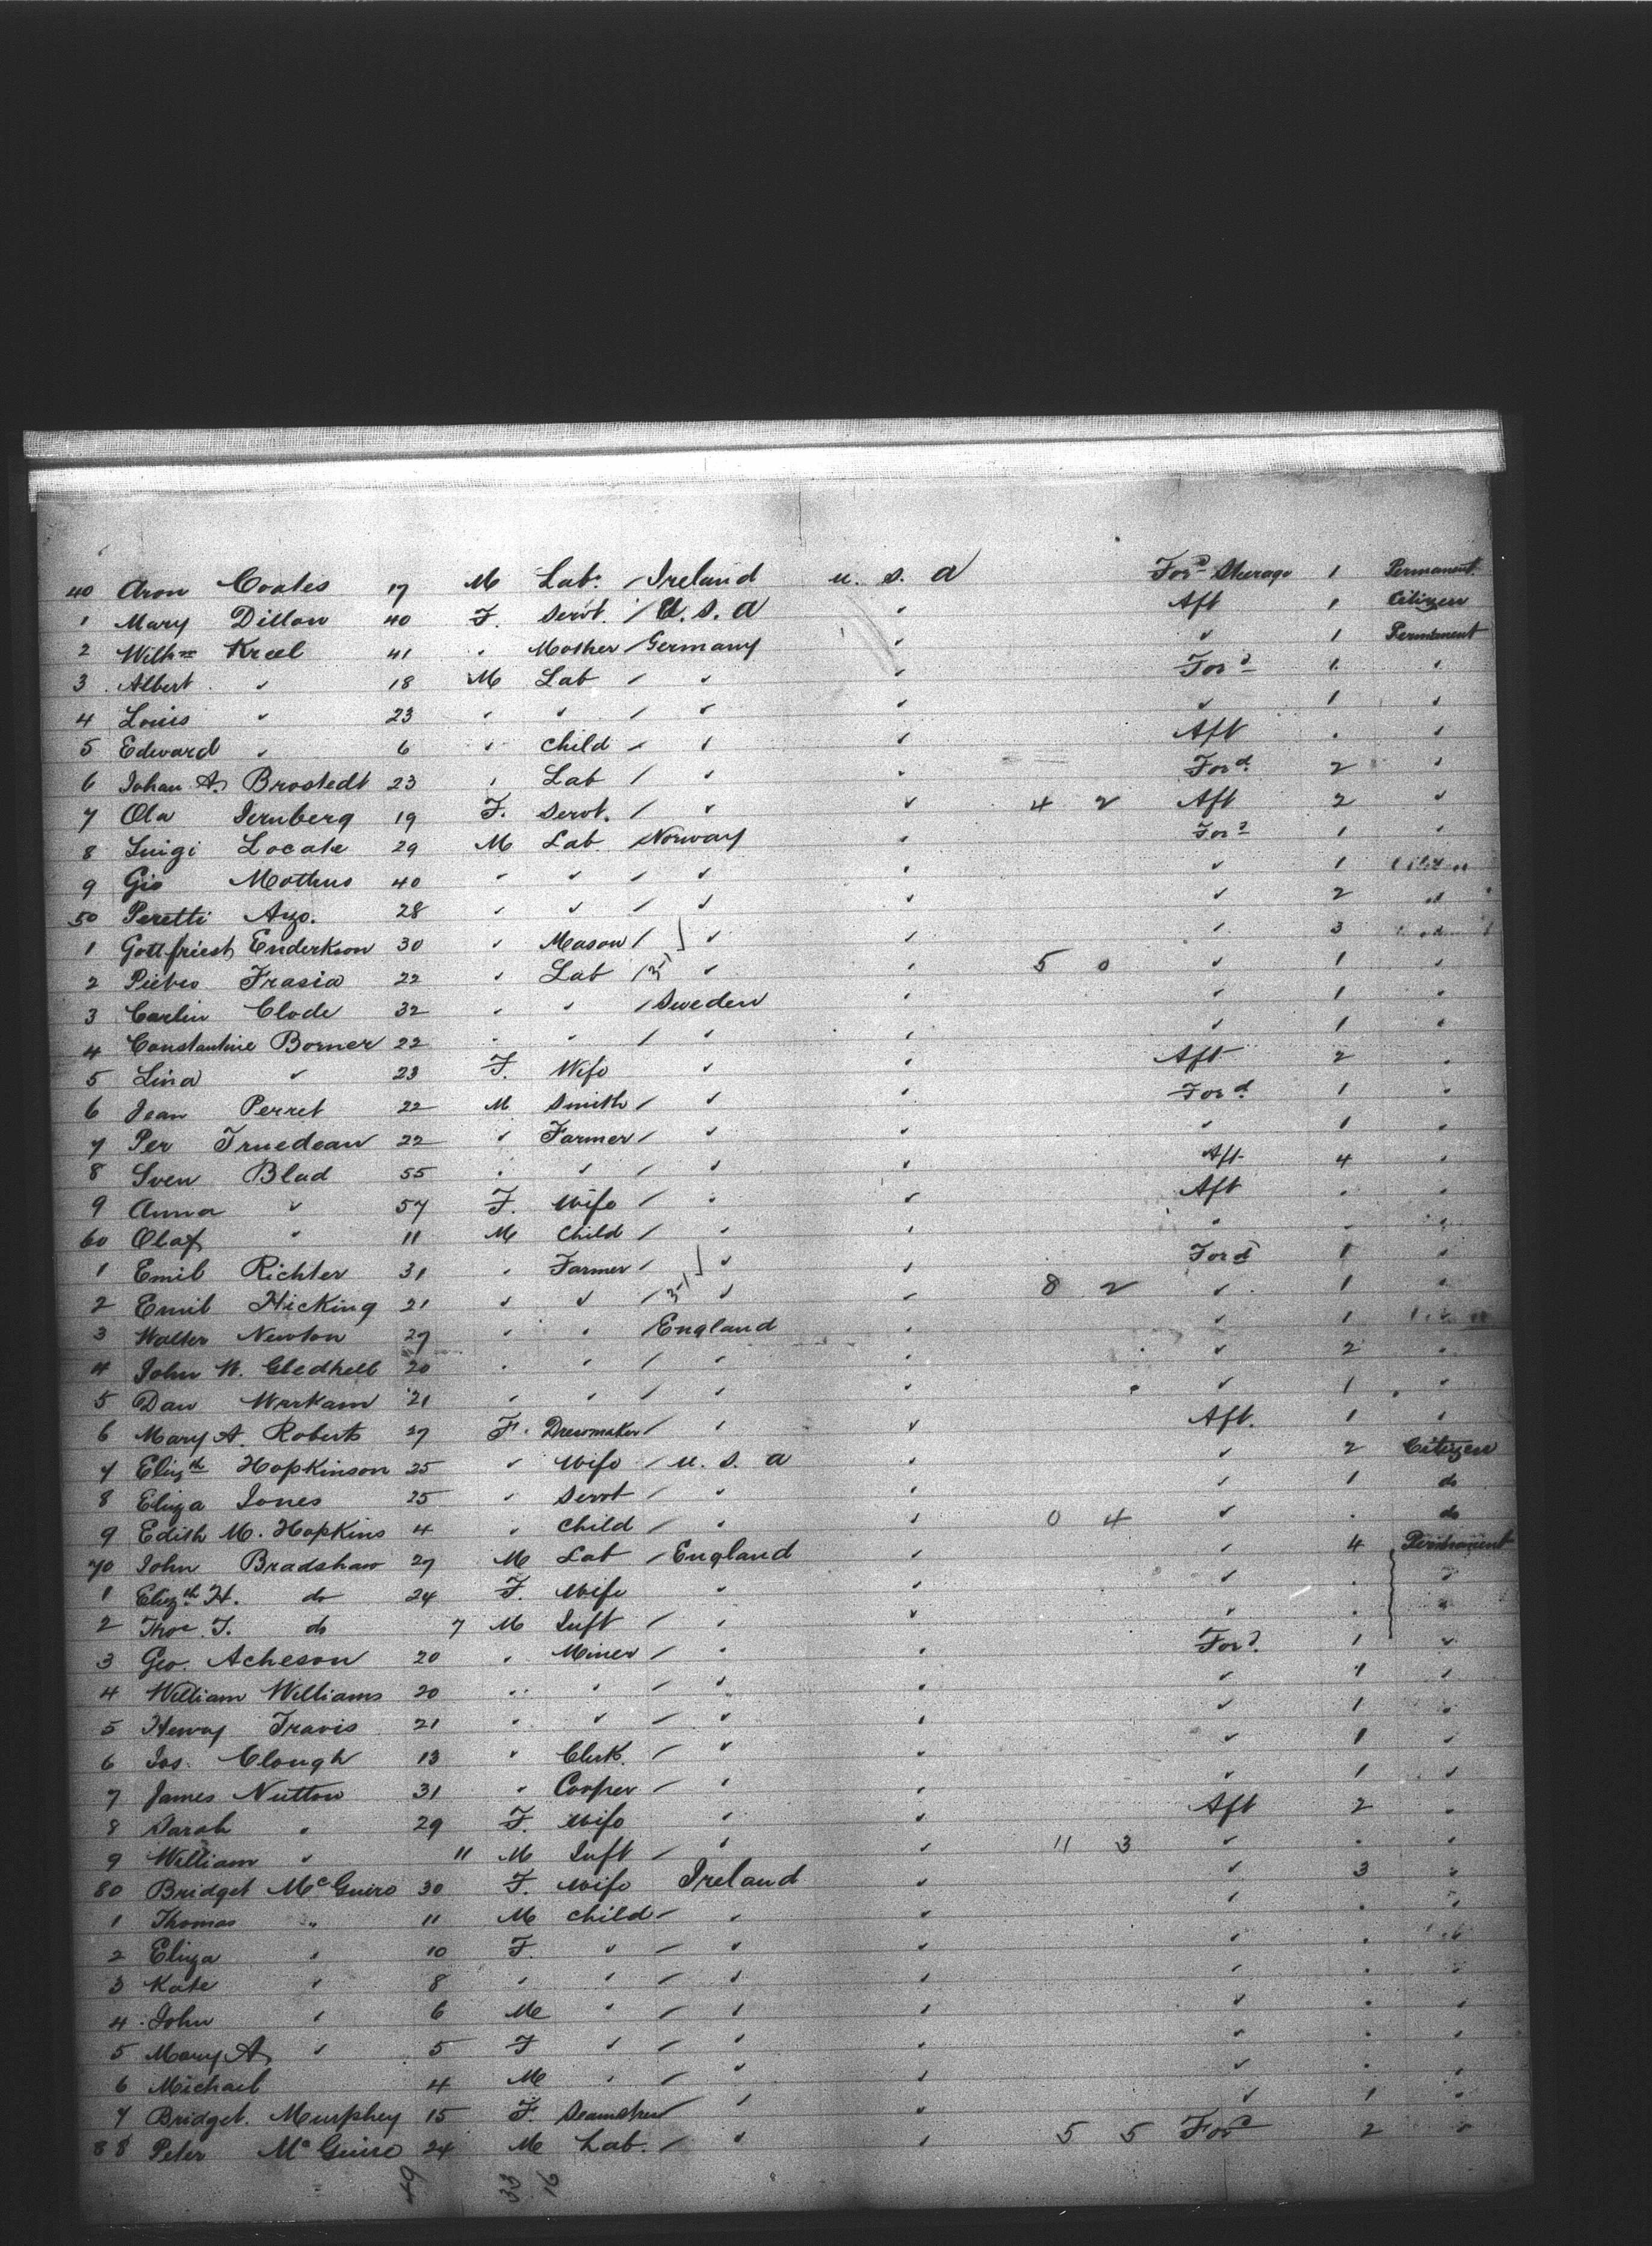 40 Aron Coates 17 M Labr / Ireland u. s. a Ford Sterage 1 Permanent
1 Mary Dillon 40 F. Servt. / U. S. A ✓ Aft 1 Citizen
2 Wilhm Kreel 41 ✓ Mother / Germany ✓ ✓ 1 Permanent
3 Albert ✓ 18 M Lab / ✓ ✓ Ford 1 ✓
4 Louis ✓ 23 ✓ ✓ / ✓ ✓ ✓ 1 ✓
5 Edward ✓ 6 ✓ Child / ✓ ✓ Aft . ✓
6 Johan A. Brostedt 23 ✓ Lab / ✓ ✓ Ford 2 ✓
7 Ola Jernberg 19 F. Servt. / ✓ ✓ 4 2 Aft 2 ✓
8 Luigi Locate 29 M Lab / Norway ✓ Ford 1 ✓
9 Gio Motteus 40 ✓ ✓ / ✓ ✓ ✓ 1
50 Peretti Azo. 28 ✓ ✓ / ✓ ✓ ✓ 2
1 Gottfriesh Enderkson 30 ✓ Mason / ✓ ✓ ✓ 3
2 Pietro Frasia 22 ✓ Lab / 31 ✓ ✓ 5 0 ✓ 1 ✓
3 Carlin Clode 32 ✓ ✓ / Sweden ✓ ✓ 1 ✓
4 Constantine Borner 22 ✓ ✓ / ✓ ✓ ✓ 1 ✓
5 Lina ✓ 23 F. Wife ✓ ✓ Aft 2 ✓
6 Jean Perret 22 M Smith / ✓ ✓ Ford 1 ✓
7 Per Truedeau 22 ✓ Farmer / ✓ ✓ ✓ 1 ✓
8 Sven Blad 55 ✓ ✓ / ✓ ✓ Aft 4 ✓
9 Anna ✓ 57 F. Wife / ✓ ✓ Aft . ✓
60 Olaf ✓ 11 M Child / ✓ ✓ ✓ . ✓
1 Emil Richter 31 ✓ Farmer / ✓ ✓ Ford 1 ✓
2 Emil Hicking 21 ✓ ✓ / 31 ✓ ✓ 8 2 ✓ 1 ✓
3 Walter Newton 27 ✓ ✓ / England ✓ ✓ 1
4 John W. Gledhell 20 ✓ ✓ / ✓ ✓ ✓ 2 ✓
5 Dan Warkam 21 ✓ ✓ / ✓ ✓ ✓ 1 ✓
6 Mary A. Roberts 27 F. Dressmaker / ✓ ✓ Aft. 1 ✓
7 Elizth Hopkinson 25 ✓ Wife / u. s. a ✓ ✓ 2 Citizen
8 Eliza Jones 25 ✓ Servt / ✓ ✓ ✓ 1 do
9 Edith M. Hopkins 4 ✓ Child / ✓ ✓ 0 4 ✓ . do
70 John Bradshaw 27 M Lab / England ✓ ✓ 4 Permanent
1 Elizth H. do 24 F. Wife ✓ ✓ ✓ . ✓
2 Thos T. do 7 M Inft / ✓ ✓ ✓ . ✓
3 Geo. Acheson 20 ✓ Miner / ✓ ✓ Ford 1 ✓
4 William Williams 20 ✓ ✓ / ✓ ✓ ✓ 1 ✓
5 Henry Travis 21 ✓ ✓ / ✓ ✓ ✓ 1 ✓
6 Jos. Clough 13 ✓ Clerk. / ✓ ✓ ✓ 1 ✓
7 James Nutton 31 ✓ Cooper / ✓ ✓ ✓ 1 ✓
8 Sarah ✓ 29 F. Wife ✓ ✓ Aft 2 ✓
9 William ✓ 11 M Inft / ✓ ✓ 11 3 ✓ . ✓
80 Bridget McGuire 30 F. Wife Ireland ✓ ✓ 3 ✓
1 Thomas ✓ 11 M Child / ✓ ✓ ✓ . ✓
2 Eliza ✓ 10 F. ✓ / ✓ ✓ ✓ . ✓
3 Kate ✓ 8 ✓ ✓ / ✓ ✓ ✓ . ✓
4 John ✓ 6 M ✓ / ✓ ✓ ✓ . ✓
5 Mary A ✓ 5 F ✓ / ✓ ✓ ✓ . ✓
6 Michael 4 M ✓ / ✓ ✓ ✓ . ✓
7 Bridget. Murphey 15 F. Seamstress / ✓ ✓ ✓ 1 ✓
88 Peter McGuire 24 M Lab. / ✓ ✓ 5 5 Ford 2 ✓
49 33 16